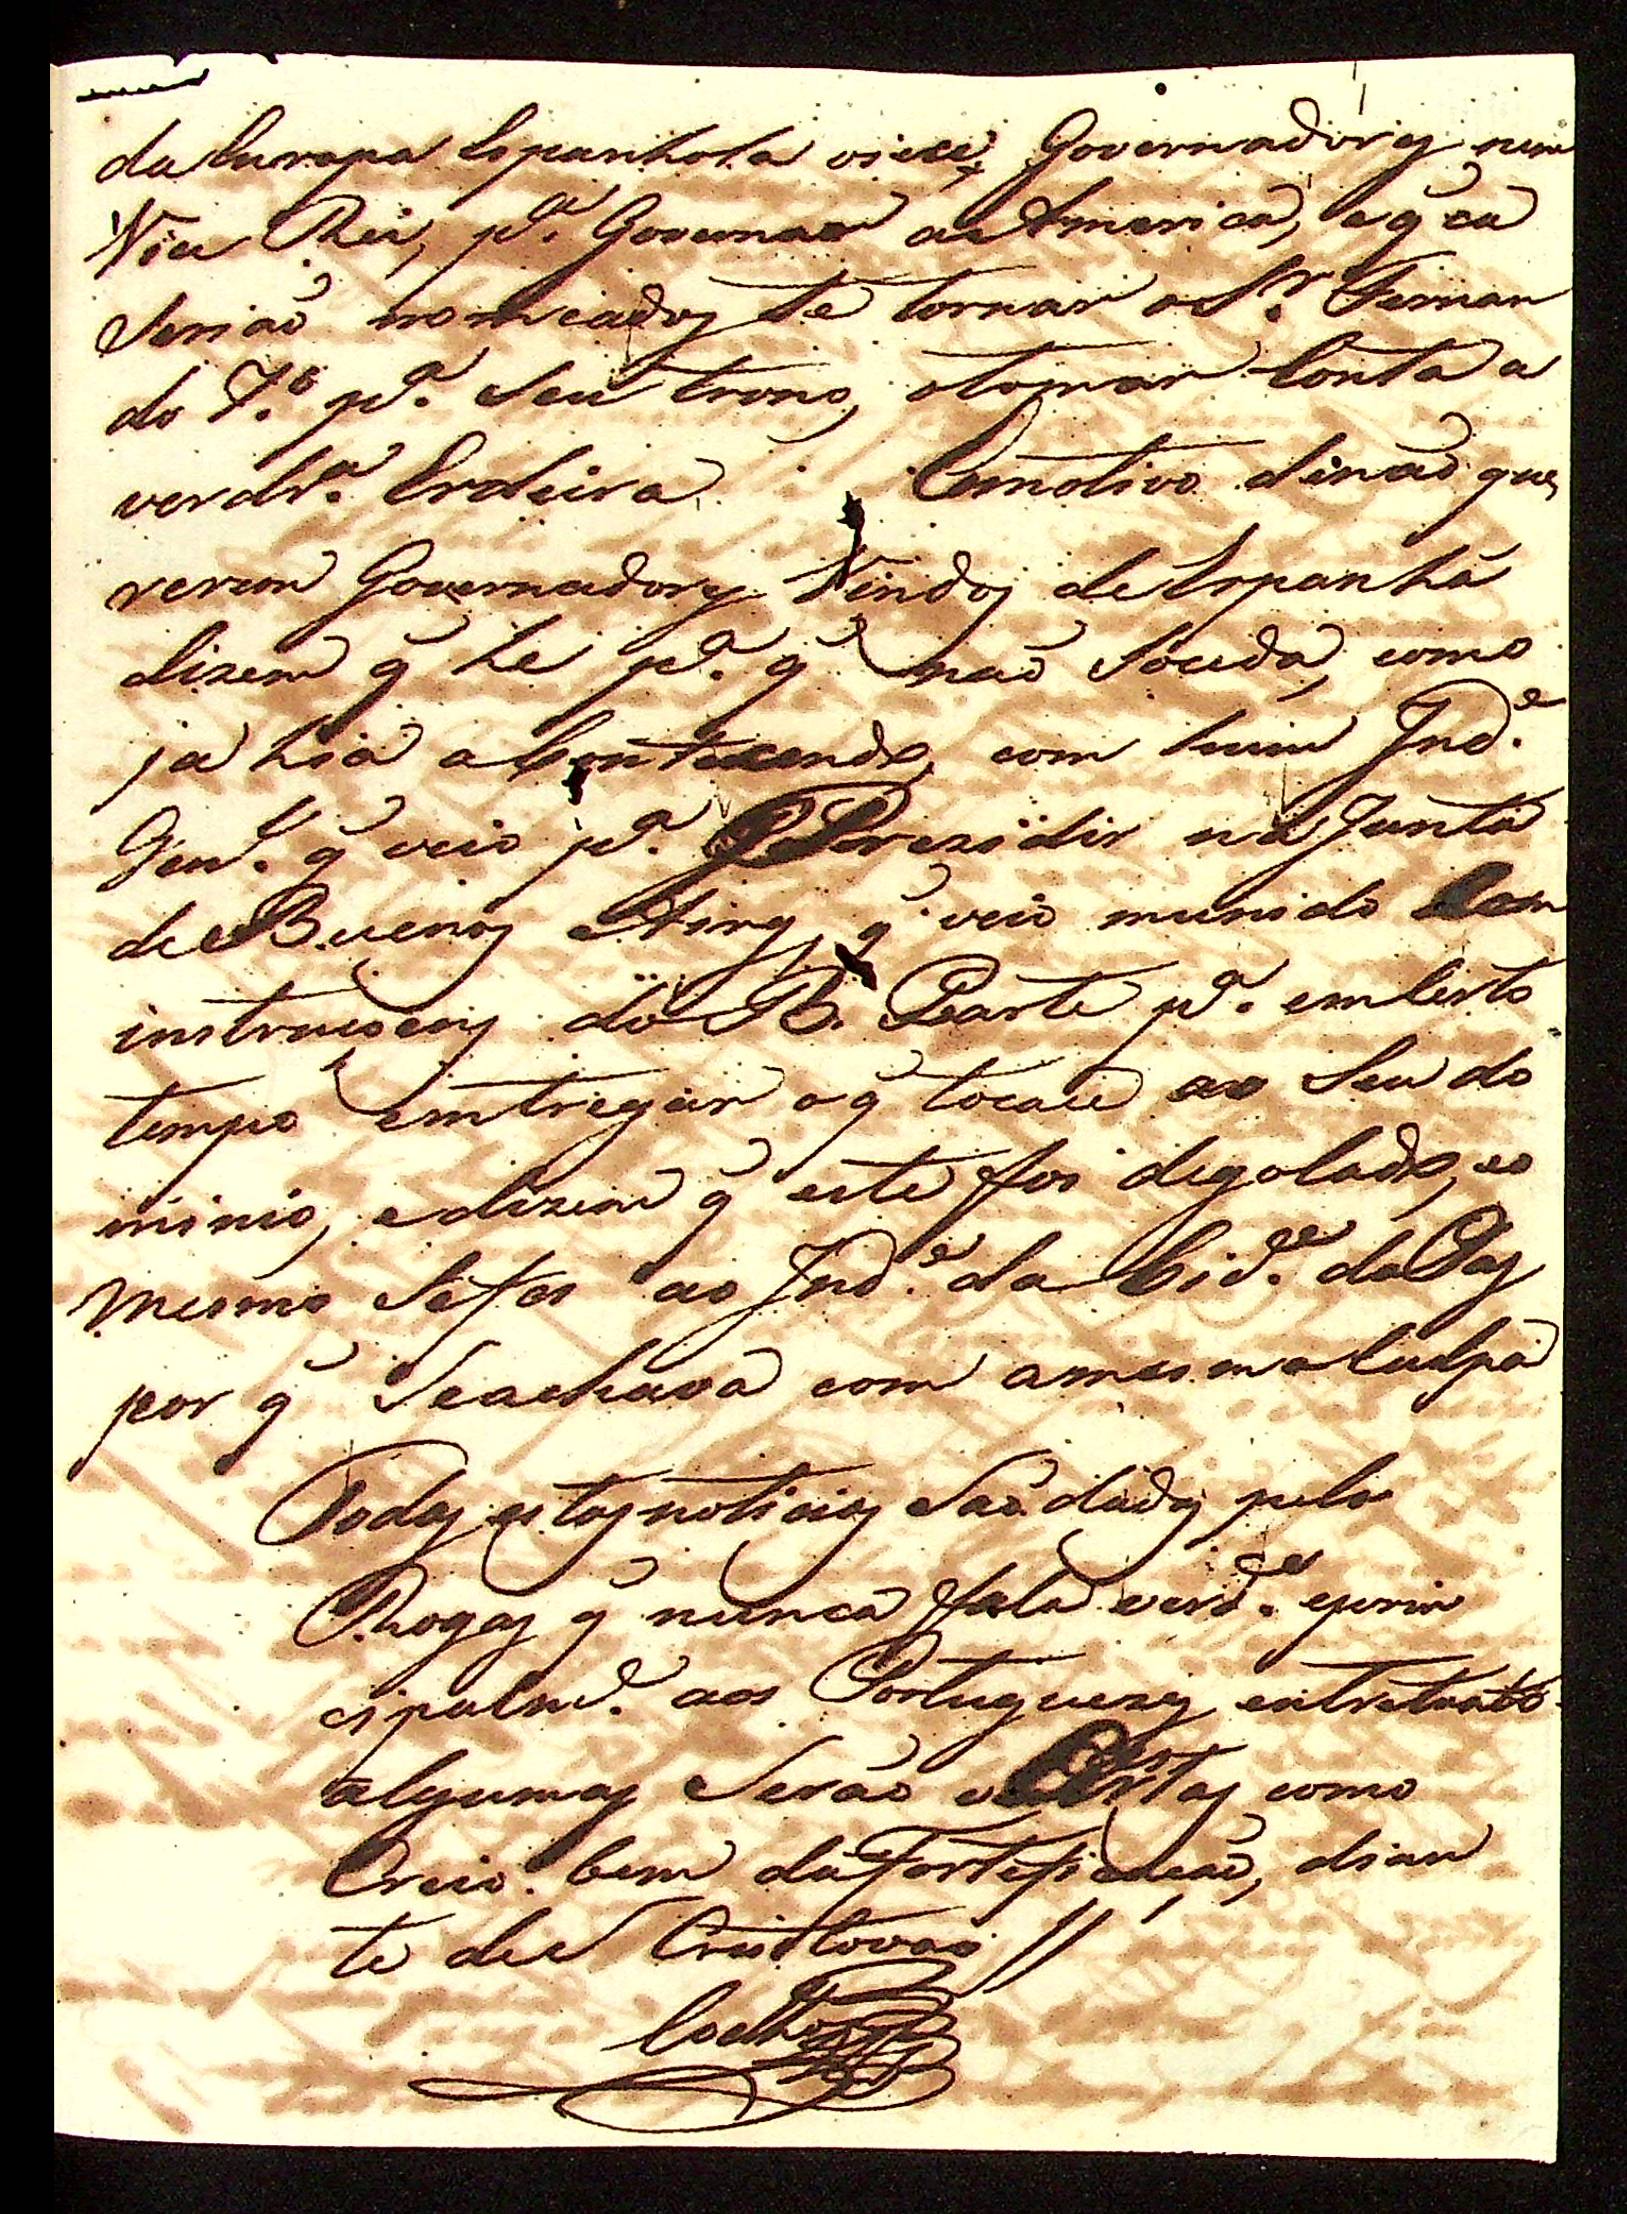 da Europa Espanhola viese, Governadores nem
Vice Rei, p.ª Governar a America, e q̃ ca
Serião nomeados te tornar o S.r Fernan
do 7.º p.ª Seu trono, o tomar Conta a
verdr.ª Erdeira. O motivo de não que
rerem Governadores Vindos de Espanha
dizem q̃ he p.ª q̃ não Soceda, como
ja hia aContecendo, com hum Ind.e
Gen.l q̃ veio p.ª Prezidir na Junta
de Buenos Aires, q̃ veio munido Com
instrucoens do B. Parte p.ª em Certo
tempo entregar o q̃ tocace ao Seu do
minio, e dizem q̃ este foi degolado, e o
mesmo Se fes ao Ind.e da Cid.e da Pas
por q̃ Se achava com a mesma Culpa
Todas estas noticias São dadas pelo
Rogas q̃ nunca fala verd.e e prin
cipalm.e aos Portuguezes entretanto
algumas Serão Certas como
Creio bem da Fortificação, dian
te de S Cristovão //
Coelho